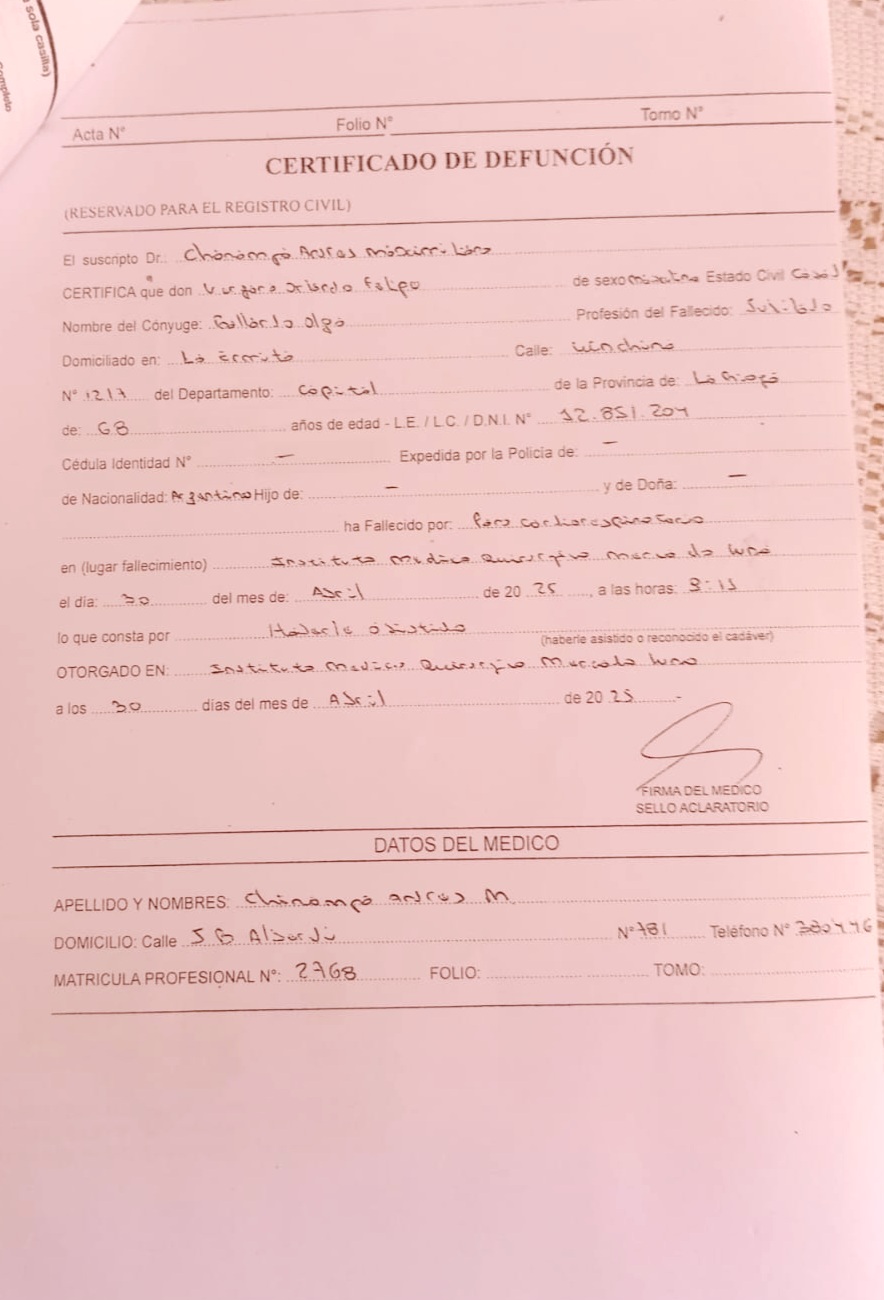 sola casilla)
Completo
Acta N° Folio N° Tomo N°
CERTIFICADO DE DEFUNCIÓN
(RESERVADO PARA EL REGISTRO CIVIL)
El suscripto Dr. Chanampa Andres Maximiliano
CERTIFICA que don Vergara Felipe de sexo masculino Estado Civil Casado
Nombre del Cónyuge: Gallardo Olga Profesión del Fallecido: Jubilado
Domiciliado en: La Ermita Calle: Vinchina
N° 1217 del Departamento: Capital de la Provincia de: La Rioja
de: 68 años de edad - L.E. / L.C. / D.N.I. N° 12.851.204
Cédula Identidad N° — Expedida por la Policía de: —
de Nacionalidad: Argentino Hijo de: — y de Doña: —
ha Fallecido por: Paro cardiorespiratorio
en (lugar fallecimiento) Instituto Medico Quirurgico Mercado Luna
el día: 30 del mes de: Abril de 20 25, a las horas:
lo que consta por Haberle asistido (haberle asistido o reconocido el cadáver)
OTORGADO EN: Instituto Medico Quirurgico Mercado Luna
a los 30 días del mes de Abril de 20 25 -
FIRMA DEL MEDICO
SELLO ACLARATORIO
DATOS DEL MEDICO
APELLIDO Y NOMBRES: Chanampa Andres M
DOMICILIO: Calle J B Alberdi N° 781 Teléfono N°
MATRICULA PROFESIONAL N°: 2768 FOLIO: TOMO: